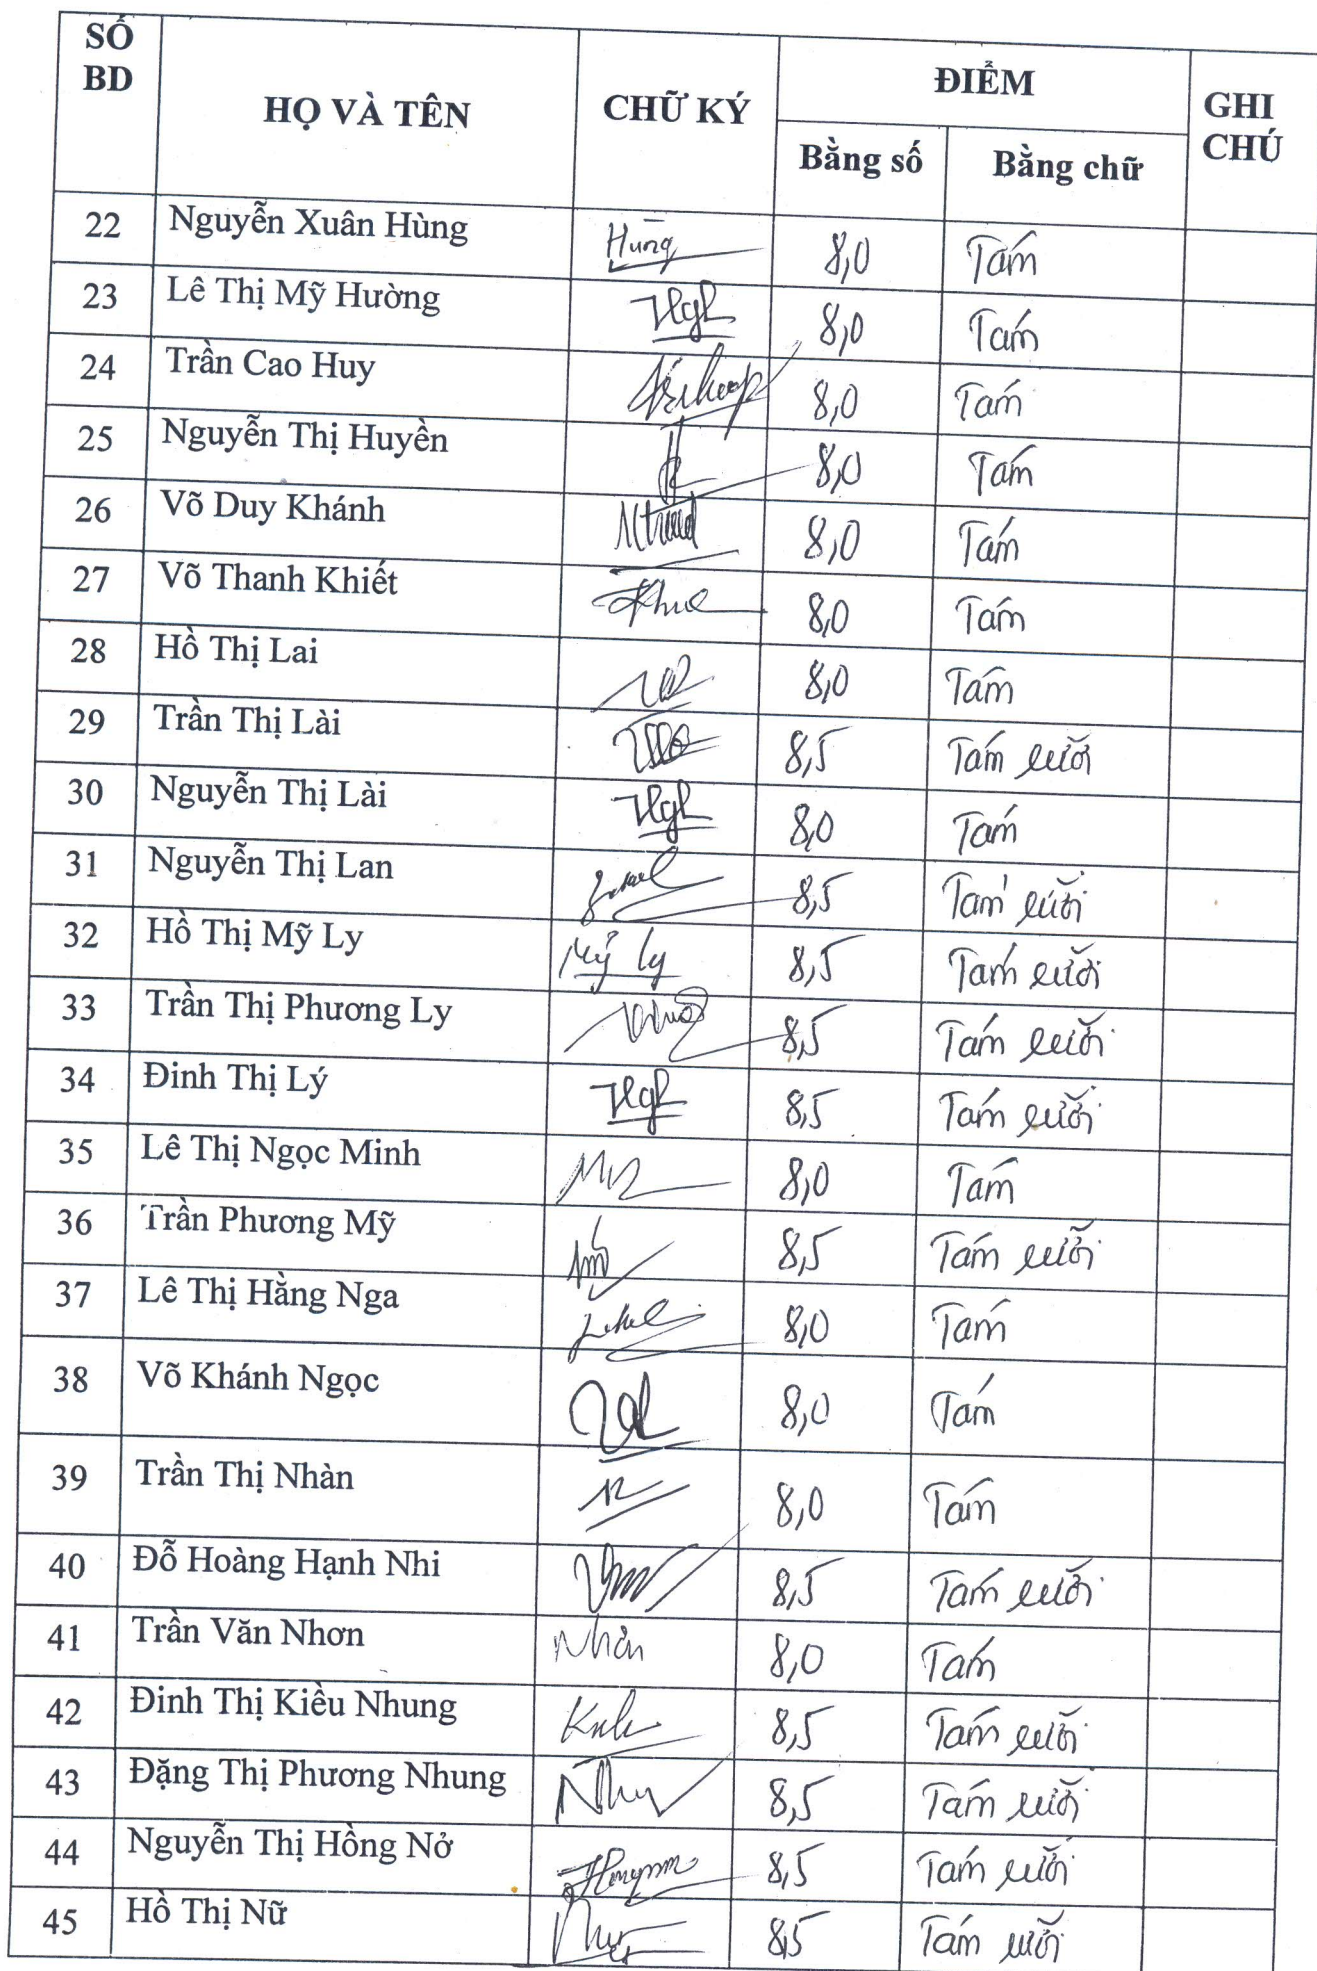 SỐ BD HỌ VÀ TÊN CHỮ KÝ ĐIỂM GHI CHÚ
Bằng số Bằng chữ
22 Nguyễn Xuân Hùng Hùng 8,0 Tám
23 Lê Thị Mỹ Hường 8,0 Tám
24 Trần Cao Huy 8,0 Tám
25 Nguyễn Thị Huyền 8,0 Tám
26 Võ Duy Khánh 8,0 Tám
27 Võ Thanh Khiết 8,0 Tám
28 Hồ Thị Lai 8,0 Tám
29 Trần Thị Lài 8,5 Tám rưỡi
30 Nguyễn Thị Lài 8,0 Tám
31 Nguyễn Thị Lan 8,5 Tám rưỡi
32 Hồ Thị Mỹ Ly Mỹ Ly 8,5 Tám rưỡi
33 Trần Thị Phương Ly 8,5 Tám rưỡi
34 Đinh Thị Lý 8,5 Tám rưỡi
35 Lê Thị Ngọc Minh 8,0 Tám
36 Trần Phương Mỹ 8,5 Tám rưỡi
37 Lê Thị Hằng Nga 8,0 Tám
38 Võ Khánh Ngọc 8,0 Tám
39 Trần Thị Nhàn 8,0 Tám
40 Đỗ Hoàng Hạnh Nhi 8,5 Tám rưỡi
41 Trần Văn Nhơn Nhơn 8,0 Tám
42 Đinh Thị Kiều Nhung 8,5 Tám rưỡi
43 Đặng Thị Phương Nhung 8,5 Tám rưỡi
44 Nguyễn Thị Hồng Nở 8,5 Tám rưỡi
45 Hồ Thị Nữ 8,5 Tám rưỡi